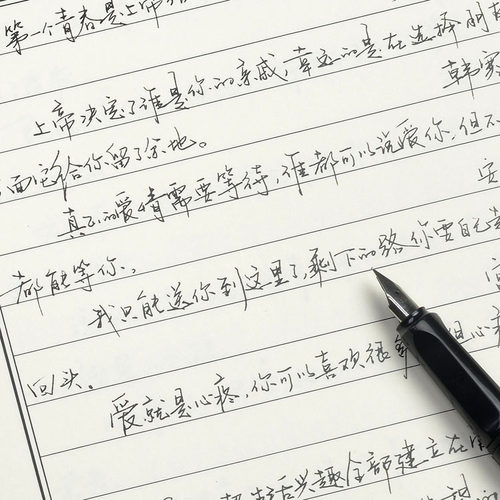 第一个青春是上帝
上帝决定了谁是你的亲戚,幸运的是在选择朋
韩寒
面它给你留了余地。
真正的爱情需要等待,谁都可以说爱你,但不
安
都能等你。
我只能送你到这里了,剩下的路你要自己走
回头。
爱就是心疼,你可以喜欢很多 但心疼
兴趣全部建立在